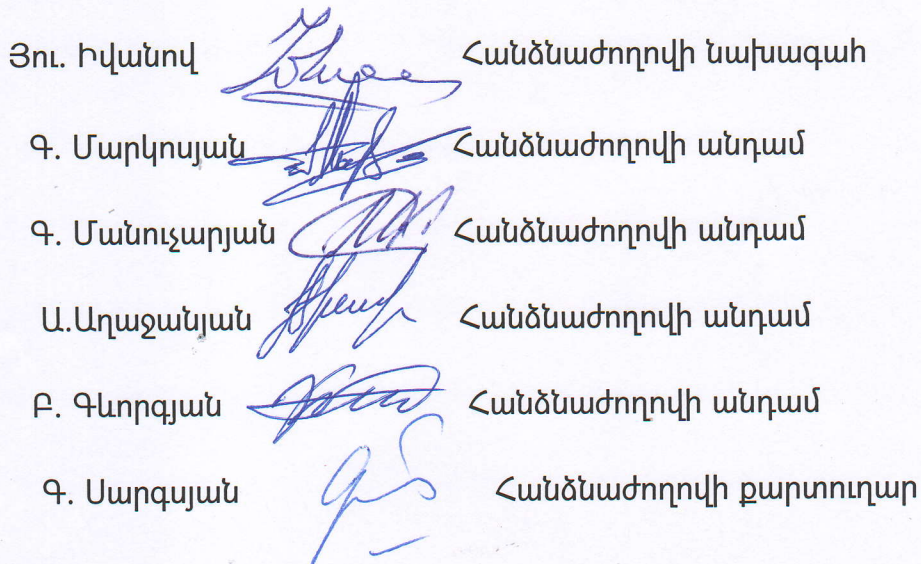 Յու. Իվանով Հանձնաժողովի նախագահ
Գ. Մարկոսյան Հանձնաժողովի անդամ
Գ. Մանուչարյան Հանձնաժողովի անդամ
Ա.Աղաջանյան Հանձնաժողովի անդամ
Բ. Գևորգյան Հանձնաժողովի անդամ
Գ. Սարգսյան Հանձնաժողովի քարտուղար